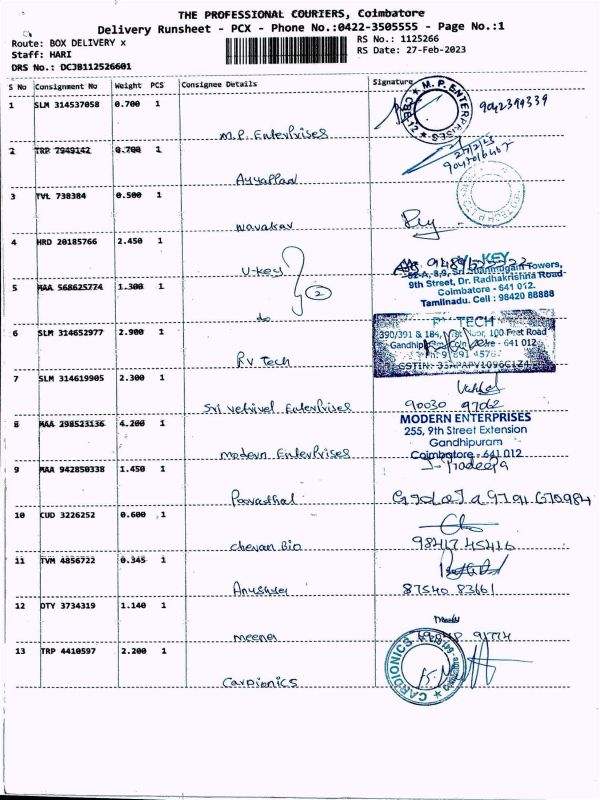 THE PROFESSIONAL COURIERS, Coimbatore
Delivery Runsheet - PCX - Phone No.:0422-3505555 - Page No.:1
Route: BOX DELIVERY x RS No.: 1125266
Staff: HARI RS Date: 27-Feb-2023
DRS No.: DCJB112526601
S No Consignment No Weight PCS Consignee Details Signature
1 SLM 314537058 0.700 1
M.P. Enterprises
M.P. ENTERPRISES
CBE-12
9042399339
2 TRP 7949142 0.700 1
Ayyappan
27/2/23
3 TVL 738384 0.500 1
4 HRD 20185766 2.450 1
V-key
V-KEY
52-A, 8,9, Sri Shanmugam Towers,
9th Street, Dr. Radhakrishna Road
Coimbatore - 641 012.
Tamilnadu. Cell : 98420 88888
5 MAA 568625774 1.300 1
do
2
6 SLM 314652977 2.900 1
RV Tech
TECH
390/391 & 184, 100 Feet Road
641 012
7 SLM 314619905 2.300 1
Sri Vetrivel Enterprises
90030 97062
8 MAA 298523136 4.200 1
Modern Enterprises
MODERN ENTERPRISES
255, 9th Street Extension
Gandhipuram
Coimbatore - 641 012
9 MAA 942850338 1.450 1
J. Pradeepa
10 CUD 3226252 0.600 1
Chevan Bio
98417 45416
11 TVM 4856722 0.345 1
87540 83661
12 OTY 3734319 1.140 1
meena
13 TRP 4410597 2.200 1
Cardionics
CARDIONICS